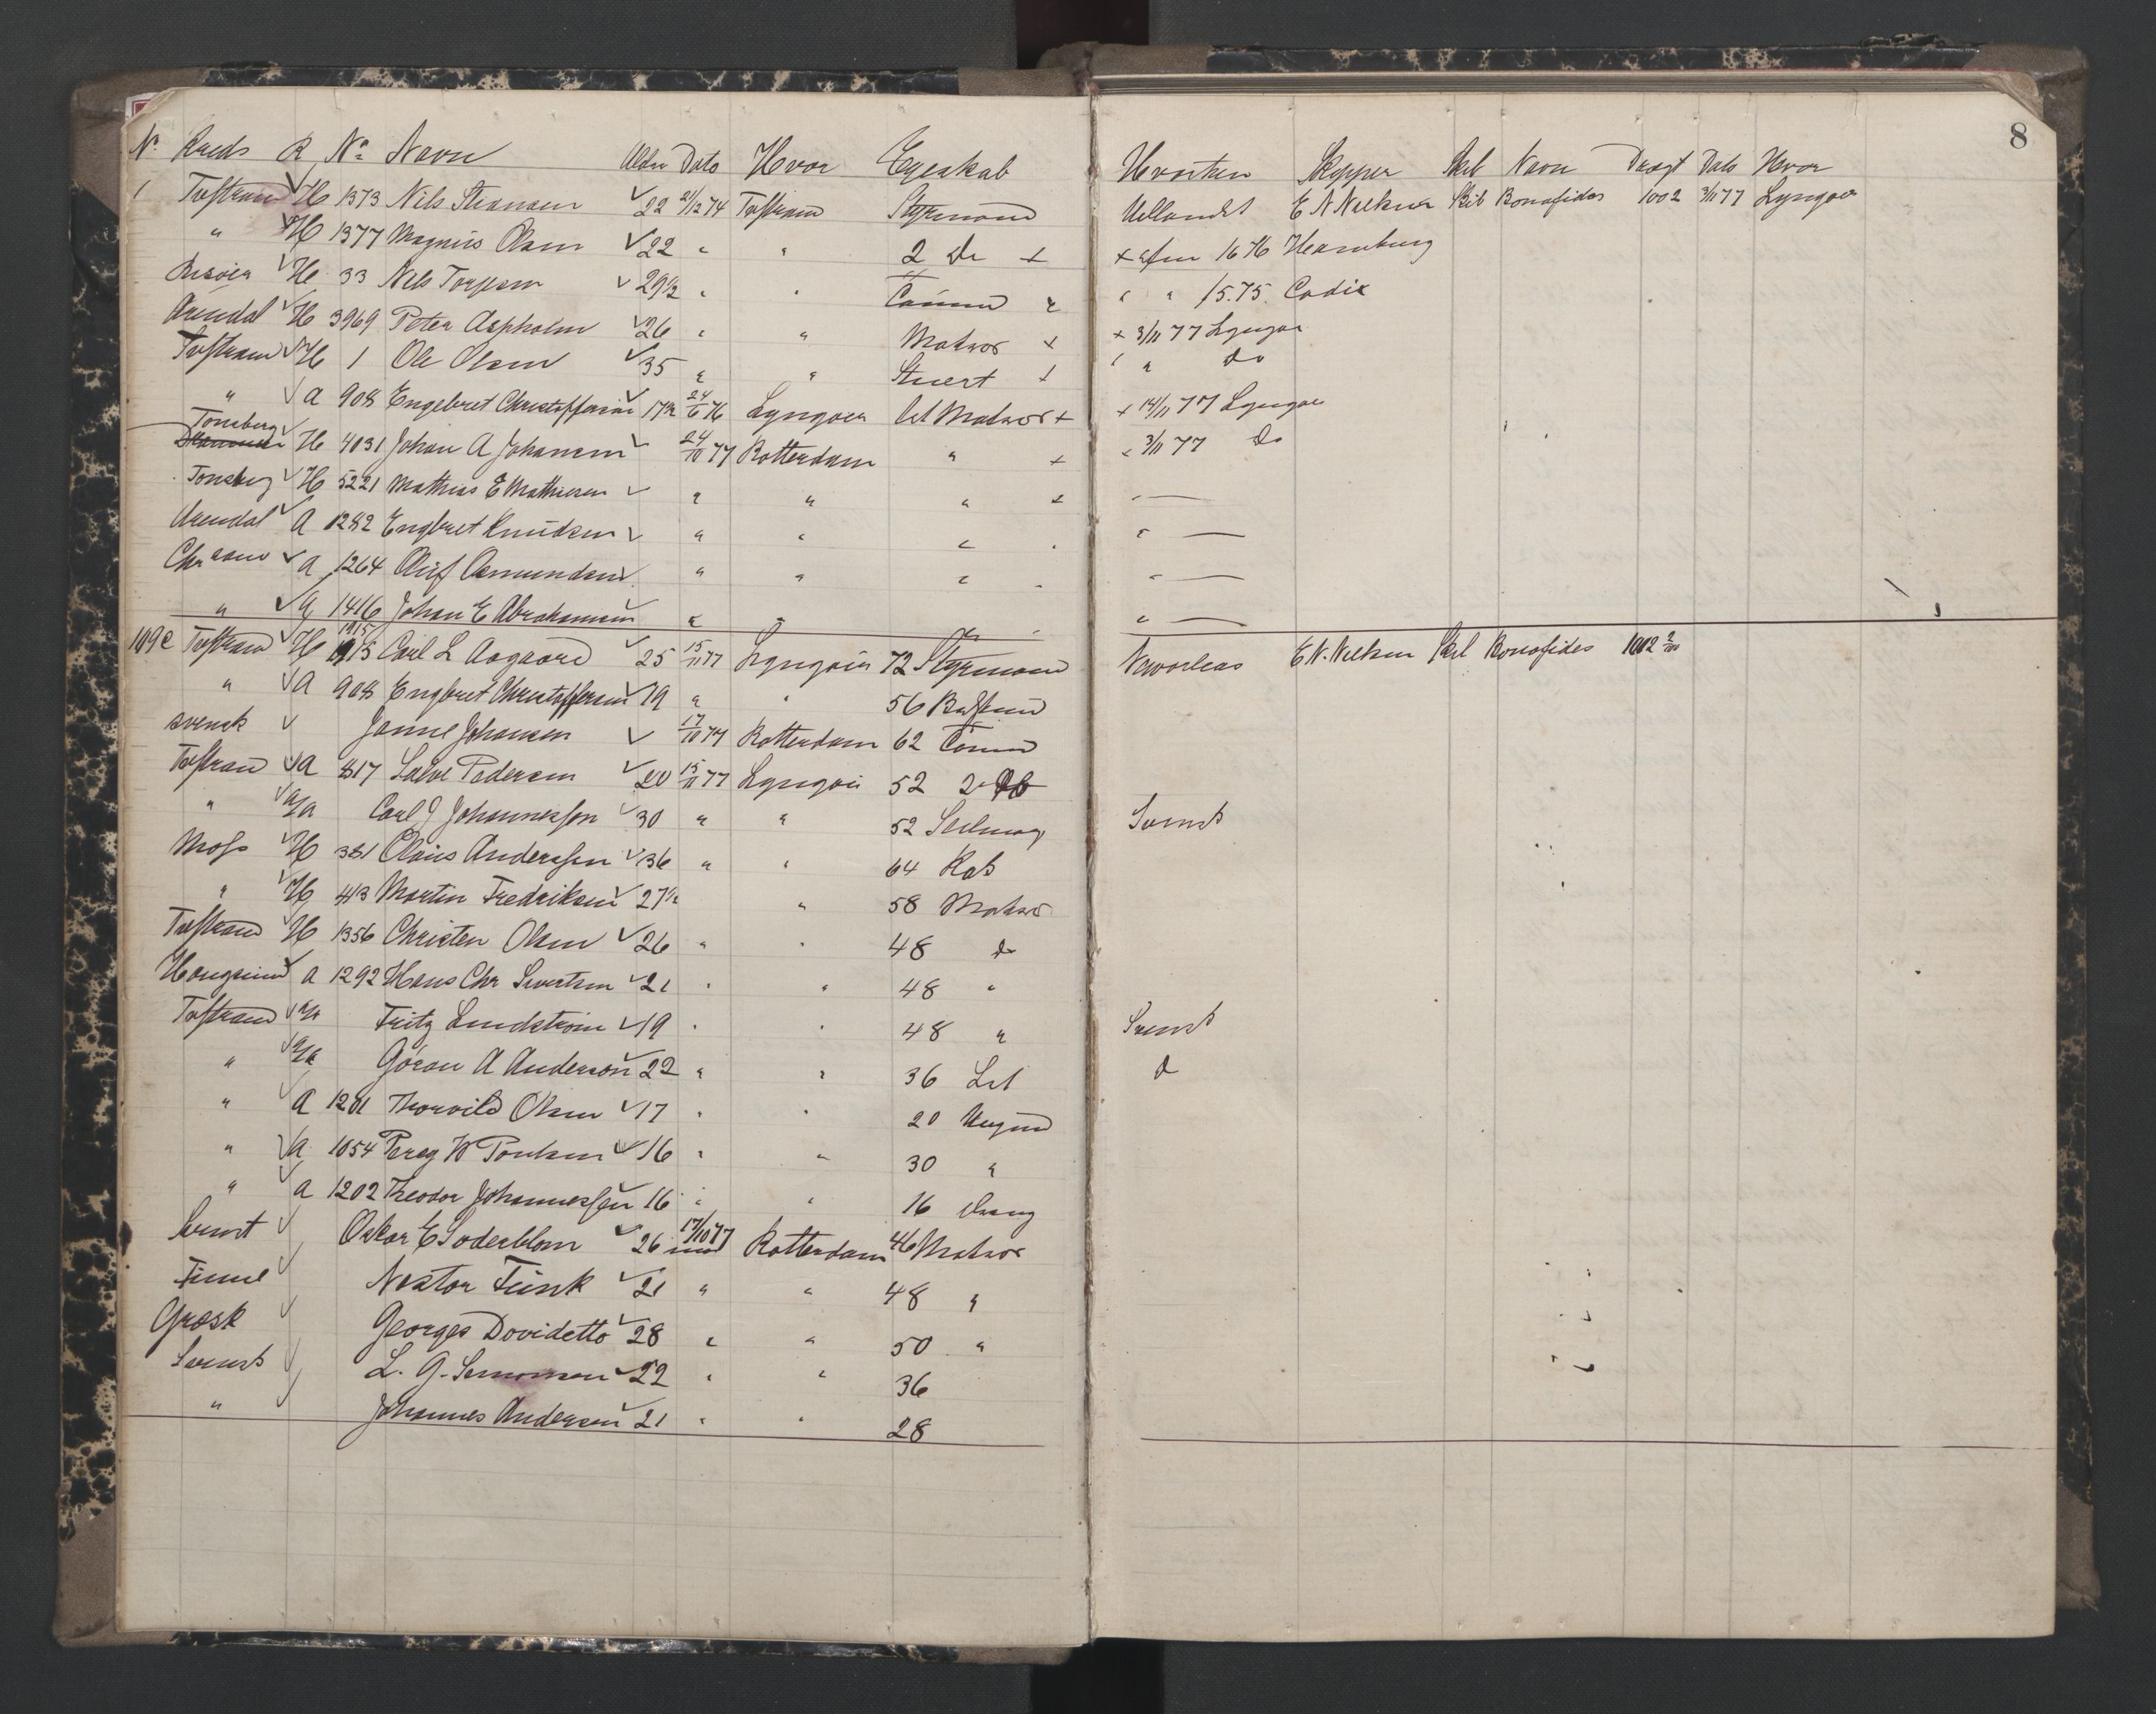 8
Nº Kreds R Nº Navn Alder Dato Hvor Egeskab Hvorhen Skipper Skib Navn Drægt Dato Hvor
1 Tvestrand H 1373 Nils Steansen 22 21/12 74 Tvestrand Styrmand Udlandet E N Nielsen Skib Bonafides 1002 3/11 77 Lyngør
" H 1377 Magnus Olsen 22 " " 2 Do + + 16 76 Hamburg
Risøer H 33 Nils Torjesen 29½ " " Tømmd " " " /5.75. Cadix
Arendal H 3969 Peter Aspholm 26 " " Matros + + 3/11 77 Lyngør
Tvestrand H 1 Ole Olsen 35 " " Stuert + " " do
" A 908 Engebret Christoffersen 17½ 24/6 76 Lyngøer Let Matros + + 14/11 77 Lyngør
Tønsberg H 4031 Johan A Johansen 24/10 77 Rotterdam " + " 3/11 77 Do
Tønsberg H 5221 Mathias E Mathiesen " " " + " —
Arendal A 1282 Engbret Knudsen " " " " " —
Chrsand A 1264 Oluf Asmundsen " " " " " —
" A 1416 Johan E Abrahamsen " " " " —
109 Tvestrand H 1915 Carl L Aagaard 25 15/11 77 Lyngøer 72 Styrmand Neworleas E N. Nielsen Skib Bonafides 1002
" A 908 Engbret Christoffersen 19 " " 56 Bastmd
svensk Janne Johansen 17/10 77 Rotterdam 62 Tømmd
Tvestrand A 817 Salve Pedersen 20 15/11 77 Lyngøer 52 2
" a/a Carl J Johannessen 30 " " 52 Seilmag Svensk
Moss H 381 Olaus Anderssen 36 " " 64 Kok
" H 413 Martin Fredriksen 27½ " 58 Matros
Tvestrand H 1356 Christen Olsen 26 " " 48 do
Haugesund A 1292 Hans Chr Sivertsen 21 " " 48 "
Tvestrand a/a Fritz Lindstrøm 19 " " 48 " Svensk
" a/a Göran A Anderson 22 " " 36 Let d
" A 1201 Thorvild Olsen 17 " " 20 Ungmd
" A 1054 W Poulsen 16 " " 30 "
" A 1202 Theodor Johannessen 16 " " 16 Dreng
Svensk Oskar E Soderblom 26 17/10 77 Rotterdam 46 Matros
Finne Nestor Fünk 21 " " 48 "
Græsk Georges Dovidetto 28 " " 50 "
Svensk L. G. Semonsen 22 " " 36
" Johannes Andersen 21 " " 28